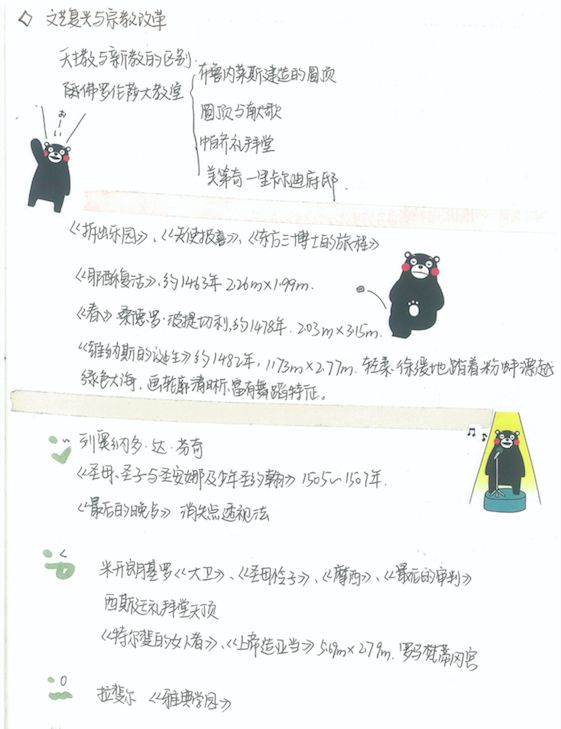 文艺复兴与宗教改革
天主教与新教的区别.
布鲁内莱斯建造的圆顶
佛罗伦萨大教堂
圆顶与献歌
帕齐礼拜堂
美第奇一里卡尔迪府邸.
お~い
《拆出乐园》、《天使报喜》、《东方三博士的旅程》
《耶稣复活》,约1463年 2.26m×1.99m.
《春》桑德罗·波提切利,约1478年. 2.03m×3.15m.
《维纳斯的诞生》约1482年, 1.73m×2.77m. 轻柔、徐缓地踏着粉蚌漂越
绿色大海, 画轮廓清晰、富有舞蹈特征。
列奥纳多·达·芬奇
《圣母、圣子与圣安娜及少年圣约翰》1505~1507年.
《最后的晚点》消失点透视法
米开朗基罗《大卫》、《圣母怜子》、《摩西》、《最后的审判》
西斯廷礼拜堂天顶
《特尔斐的女人者》、《上帝造亚当》5.69m×2.79m. 罗马梵蒂冈宫
拉斐尔 《雅典学园》